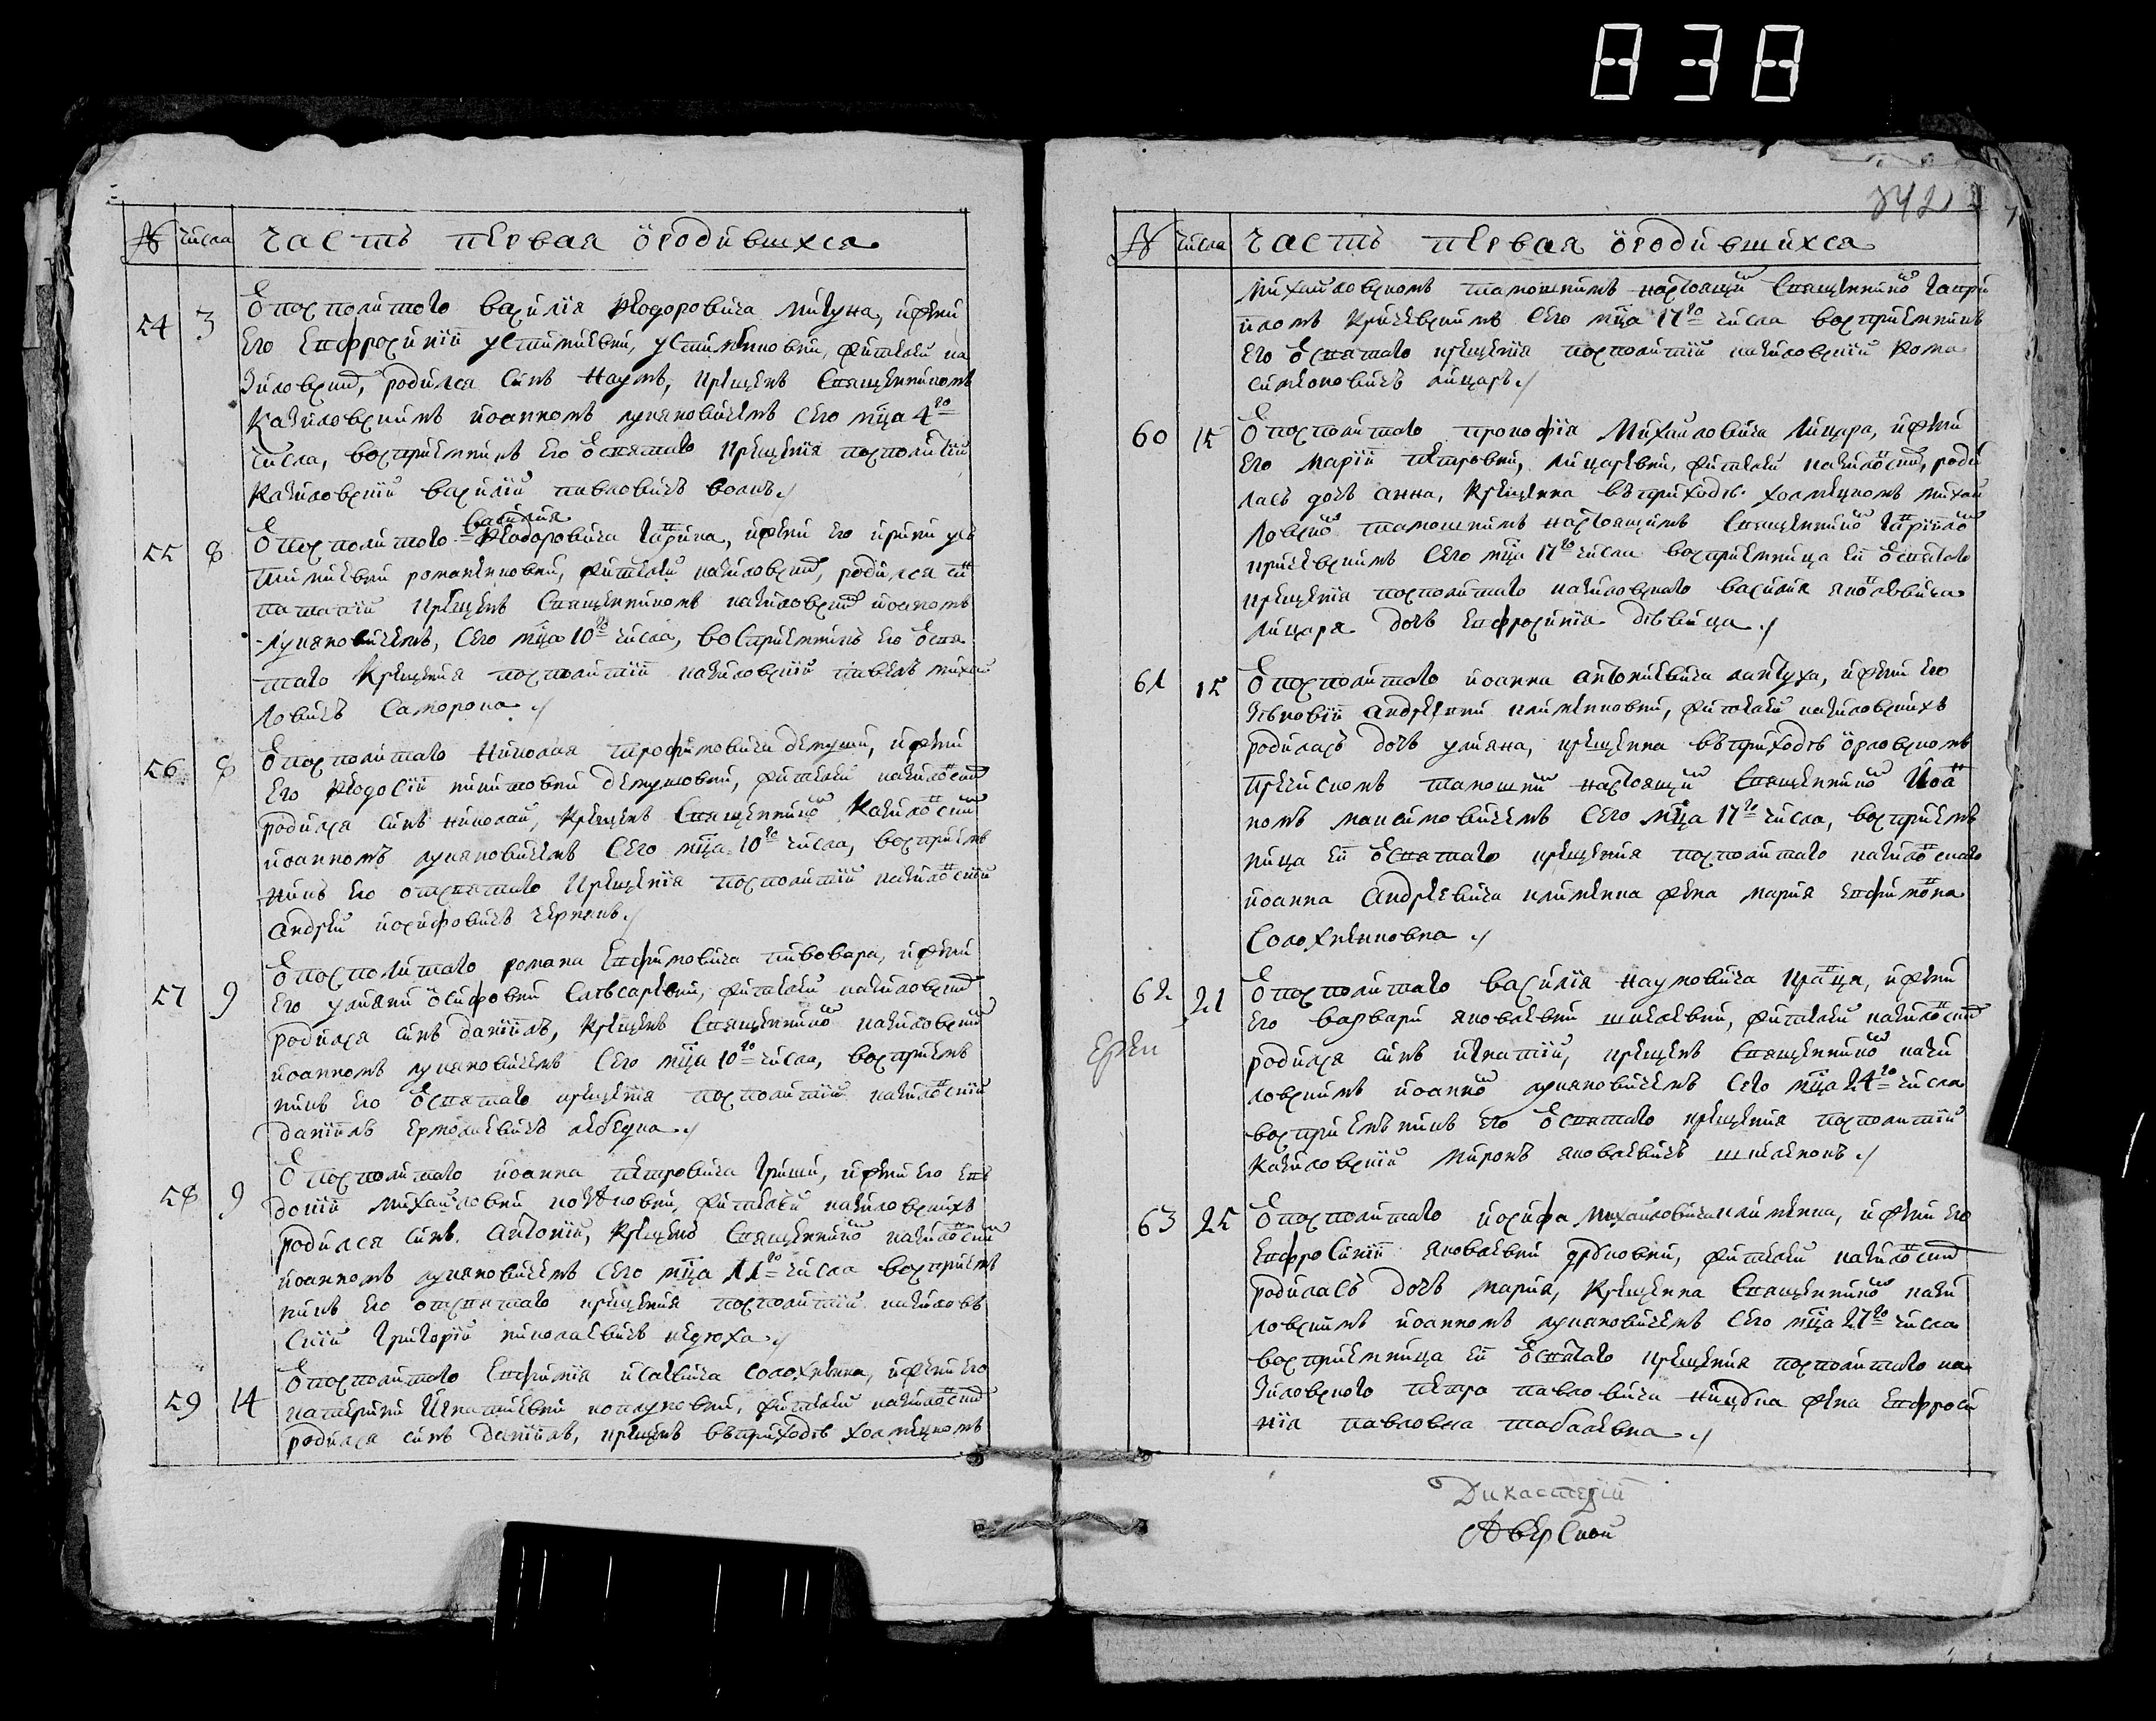 838
№ числа часть первая ѡ родившихся
54 3 Ѹ посполитаго василія Ѳеодоровича Микуна, и жени
его Евфросиніи устимиевни, устименковни, жителей ка
зиловских, родился синъ Наумъ, крещенъ Священникомъ
Казиловскимъ иоанномъ лукяновичемъ сего мца 4го
числа, воспрiемникъ его Ѿ святаго крещенія посполитій
Казиловскій василій павловичъ воликъ
василия
55 8 Ѹ посполитаго Ѳеодоровича , и жени его ирини усъ
тимиевни романенковни, жителей казиловских, родился си
игнатій крещенъ Священникомъ казиловским иоаномъ
лукяновичемъ, сего мца 10го числа, воспрiемникъ его Ѿ свя
таго крещенія посполитій казиловскій павелъ михай
ловичъ Саморока
56 8 Ѹ посполитаго Николая трофимовича , и жени
его Ѳеодосіи никитовни , жителей казиловских
родился синъ Николай, крещенъ Священником Казиловским
иоанномъ лукяновичемъ сего мца 10го числа, воспрiем
никъ его от святаго крещенія посполитій казиловскій
андрей иосифовичъ чернякъ
57 9 Ѹ посполитаго романа Евфимовича пивовара, и жени
его улияни осифовни слѣсаревни, жителей казиловских
родился синъ даніилъ, крещенъ Священником казиловским
иоанномъ лукяновичемъ сего мца 10го числа, воспрiем
никъ его Ѿ святаго крещенія посполитій казиловскій
даніилъ ермолаевичъ
58 9 Ѹ посполитаго иоанна петровича Гриши, и жени его Ев
докіи михайловни , жителей казиловскихъ
родился синъ антоній, крещенъ Священником казиловским
иоанномъ лукяновичемъ сего мца 11го числа воспрiем
никъ его от святаго крещенія посполитій казиловъ
скій григорій николаевичъ
59 14 Ѹ посполитаго Евфимія исаевича солохненка, и жени его
катерини Игнатиевни , жителей казиловских
родился синъ даніилъ, крещенъ въ приходѣ холмецкомъ
842
№ числа часть первая ѡ родившихся
михайловскомъ тамошнимъ настоящим Священником гаври
иломъ криневскимъ сего мца 17го числа воспрiемникъ
его Ѿ святаго крещенія посполитій казиловскій Кома
симеоновичъ лицарь
60 15 Ѹ посполитаго прокофія Михайловича лицара, и жени
его маріи петровни, лицаревни, жителей казиловских, роди
лась дочь анна, крещенна въ приходѣ холмецкомъ михай
ловском тамошнимъ настоящимъ Священником гавріилом
криневскимъ сего мца 17го числа воспрiемница ей Ѿ святаго
крещенія посполитаго казиловскаго василия яковлевича
лицаря дочь Евфросинія дѣвица
61 15 Ѹ посполитаго иоанна антониевича лантуха, и жени его
зѣновіи андреевни клименковни, жителей казиловскихъ
родилась дочь улияна, крещенна въ приходѣ орловскомъ
пречисномъ тамошним настоящим Священником Иоан
номъ максимовичемъ сего мца 17го числа, воспрiемъ
ница ей Ѿ святаго крещенія посполитаго казиловскаго
иоанна андреевича клименка жена мария Евфимовна
солохненковна
62 21 Ѹ посполитаго василія Наумовича кравця, и жени
его варвари яковлевни , жителей казиловских
родился синъ игнатій, крещенъ Священником кази
ловскимъ иоанном лукяновичемъ сего мца 24го числа
воспрiемъникъ его Ѿ святаго крещенія посполитій
казиловскій миронъ яковлевичъ
63 25 Ѹ посполитаго иосифа Михайловича клименка, и жени его
Евфросиніи яковлевни , жителей казиловских
родилась дочь мария, крещенна Священником кази
ловскимъ иоанномъ лукяновичемъ сего мца 27го числа
воспрiемница ей Ѿ святаго крещенія посполитаго ка
зиловского петра павловича жена Евфроси
нія павловна
Дикастерій